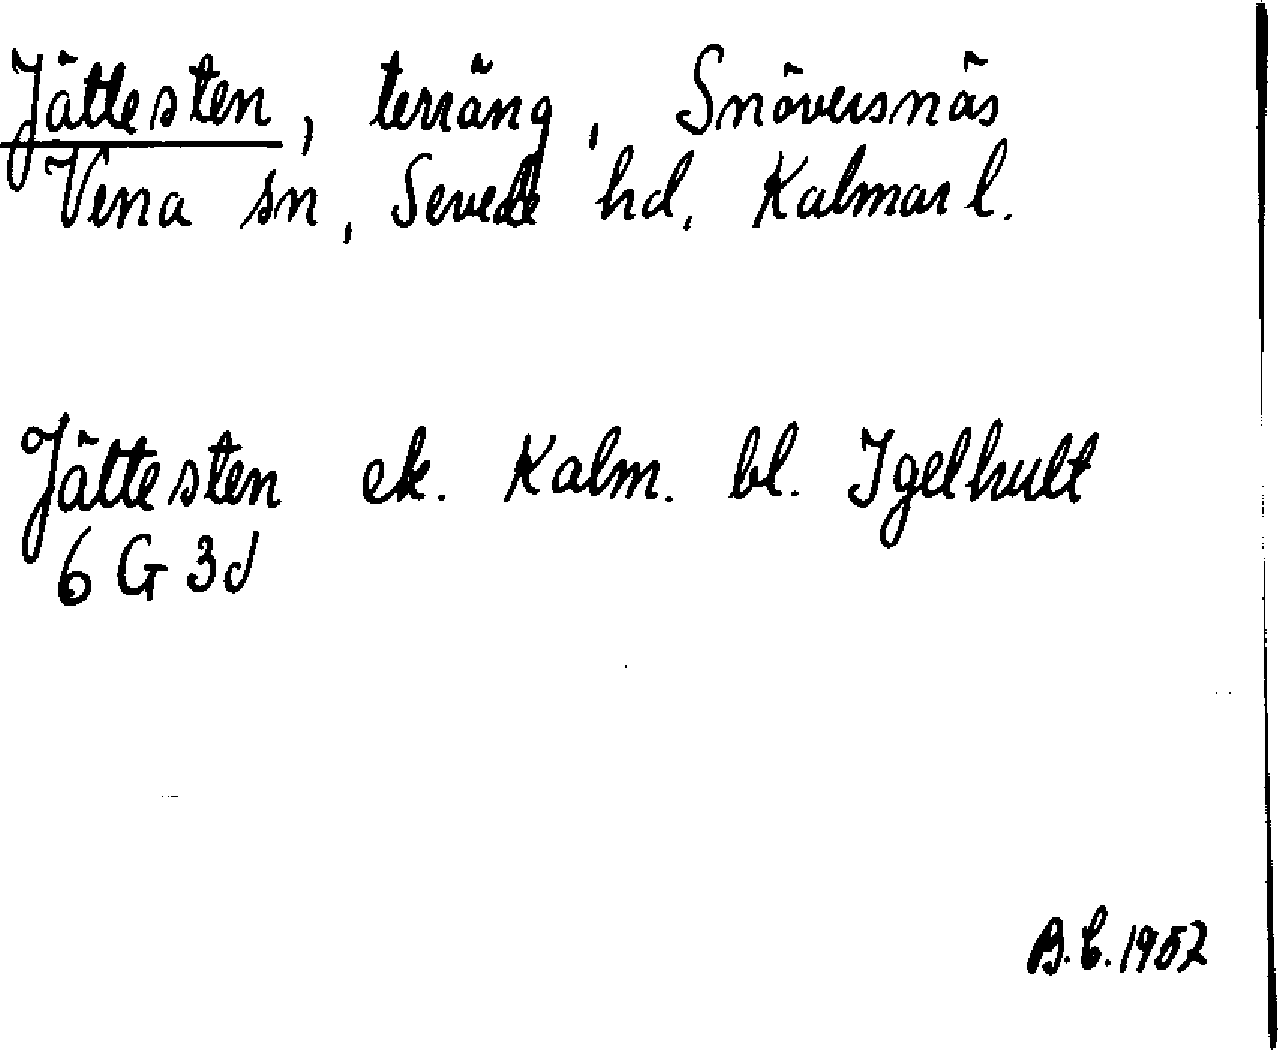 Jättesten, terräng, Snöversnäs
Vena sn, Sevede hd, Kalmar l.
Jättesten ek. Kalm. bl. Igelhult
6 G 3d
B.E. 1957